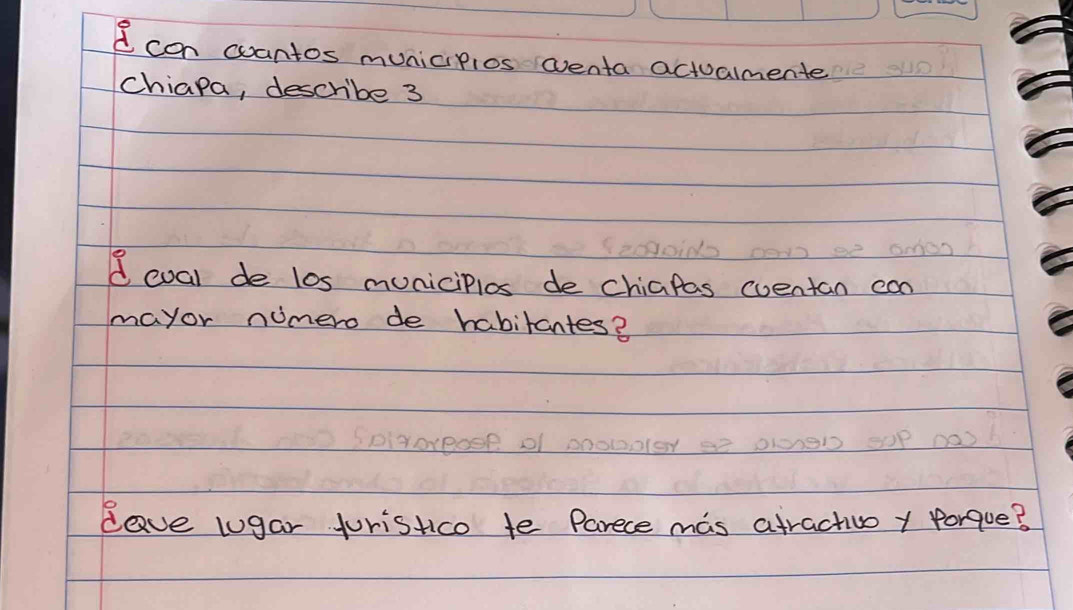 ¿con cuantos municipios cuenta actualmente
chiapa, describe 3
¿cual de los municipios de chiapas cuentan con
mayor número de habitantes?
¿Que lugar turistico te Parece más atractivo y Porque?